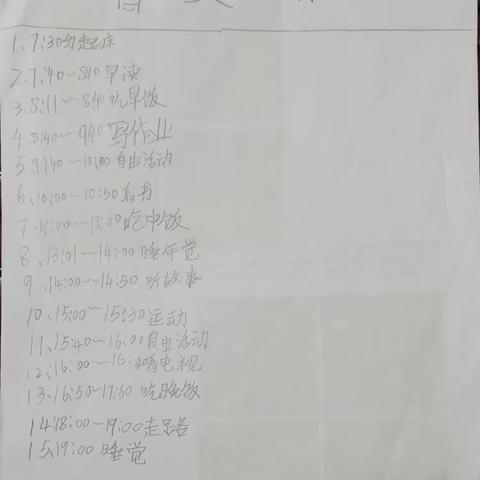 1、7:30分起床
2、7:40~8:10早读
3、8:11~8:40吃早饭
4、8:40~9:40写作业
5、9:40~10:00自由活动
6、10:00~10:30看书
7、11:00~13:00吃中饭
8、13:01~14:00睡午觉
9、14:00~14:50听故事
10、15:00~15:30运动
11、15:40~16:00自由活动
12、16:00~16:40看电视
13、16:50~17:50吃晚饭
14、18:00~19:00走路
15、19:00睡觉